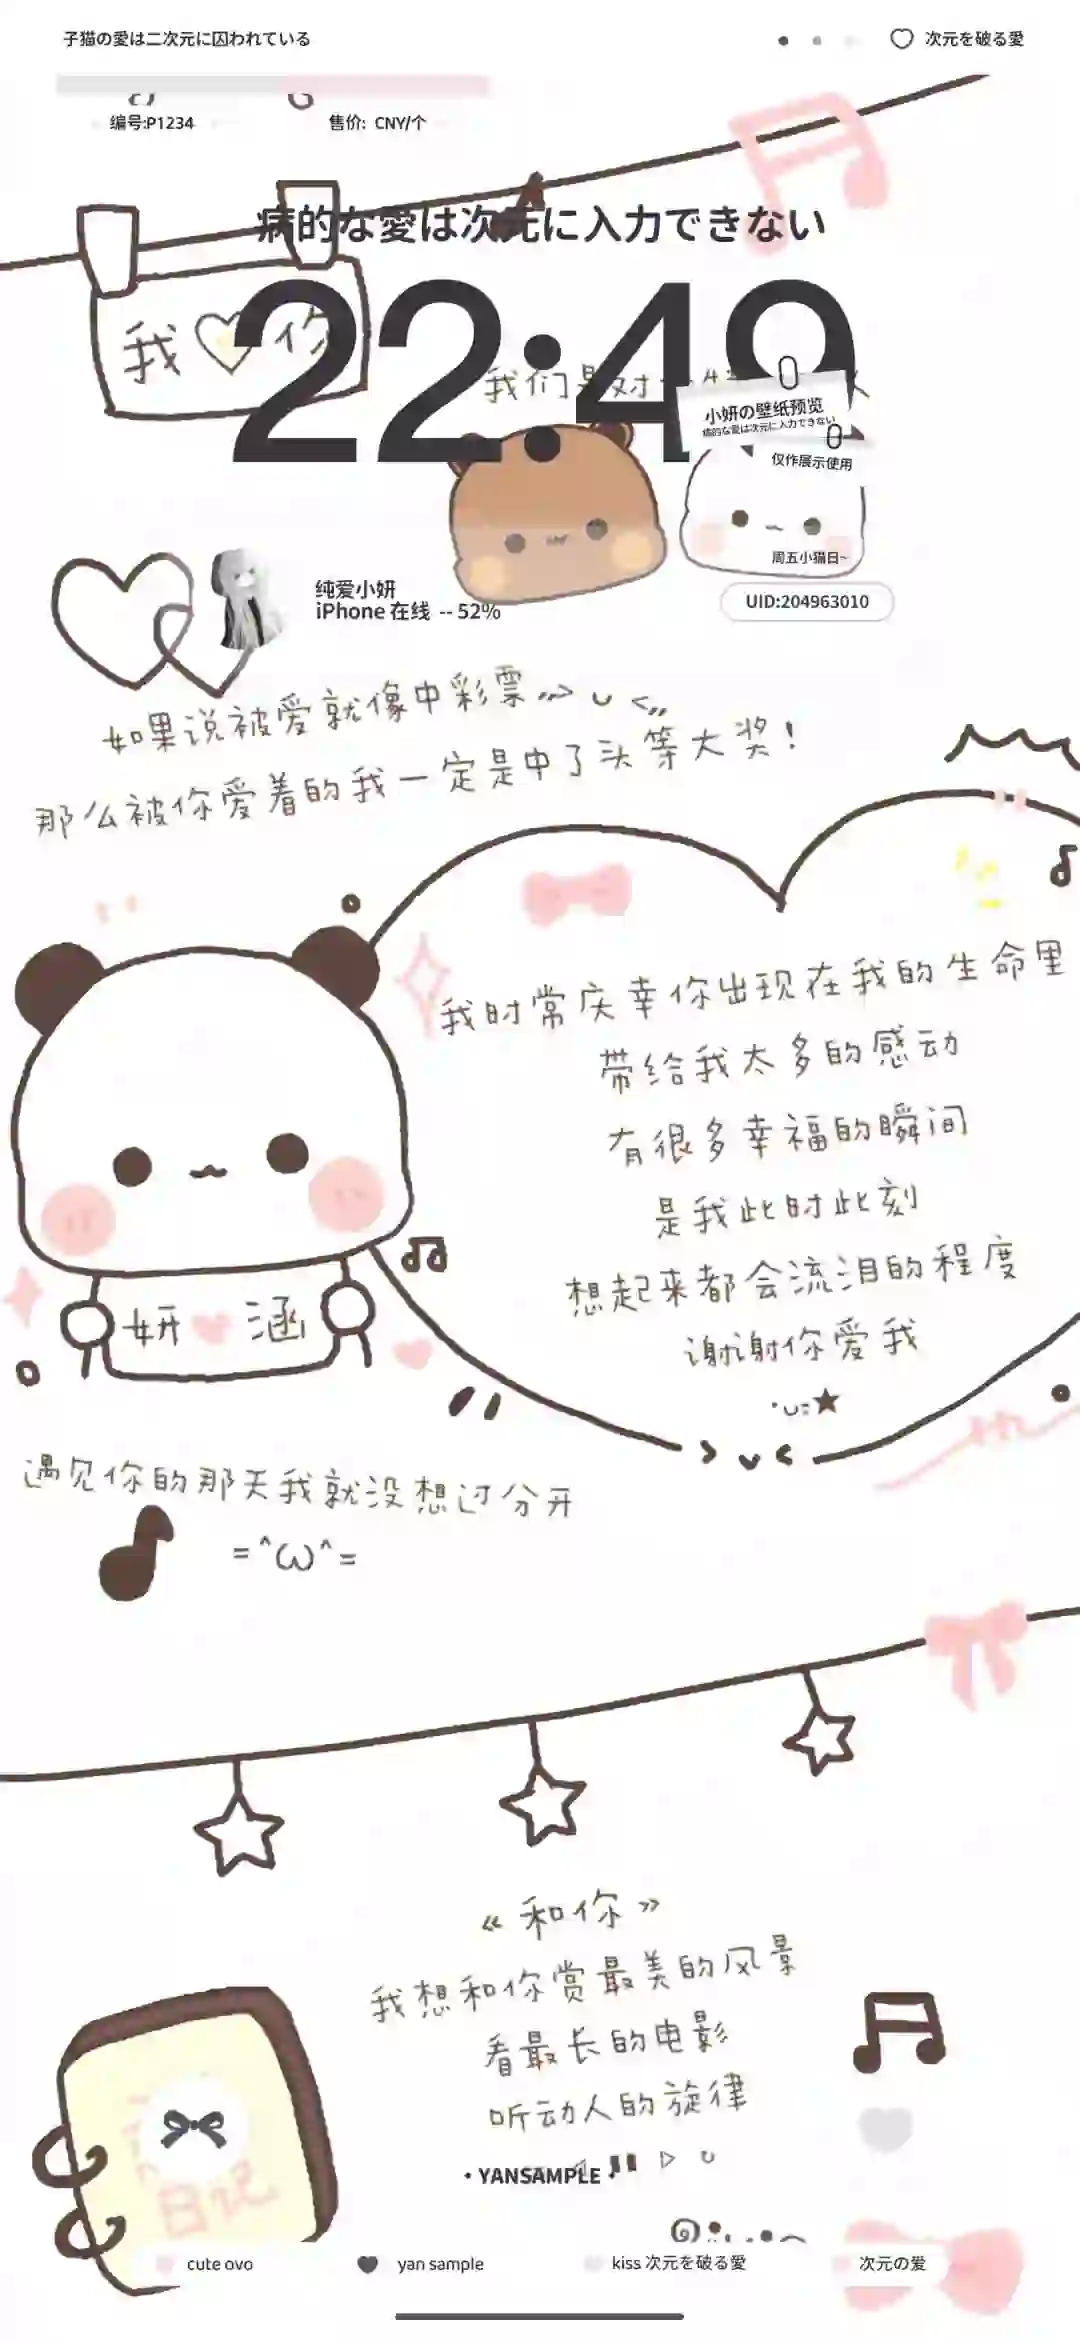 子猫の愛は二次元に囚われている
次元を破る愛
编号:P1234
售价: CNY/个
病的な愛は次元に入力できない
22:49
我 你
我们是对
小妍の壁纸预览
病的な愛は次元に入力できない
仅作展示使用
周五小猫日~
纯爱小妍
iPhone 在线 -- 52%
UID:204963010
如果说被爱就像中彩票
那么被你爱着的我一定是中了头等大奖!
我时常庆幸你出现在我的生命里
带给我太多的感动
有很多幸福的瞬间
是我此时此刻
想起来都会流泪的程度
谢谢你爱我
妍 涵
遇见你的那天我就没想过分开
=^ω^=
《和你》
我想和你赏最美的风景
看最长的电影
听动人的旋律
• YANSAMPLE •
日记
cute ovo
yan sample
kiss 次元を破る愛
次元の爱